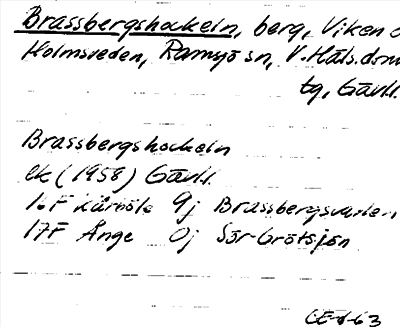 Brassbergshockeln, berg, Viken o
Holmsveden, Ramsjö sn, V. Häls. dms
tg, Gävl.
Brassbergshockeln
ek (1958) Gävl.
16F Kårböle 9j Brassbergsvallen
17F Ånge 0j Sör-Grötsjön
CE-8-63